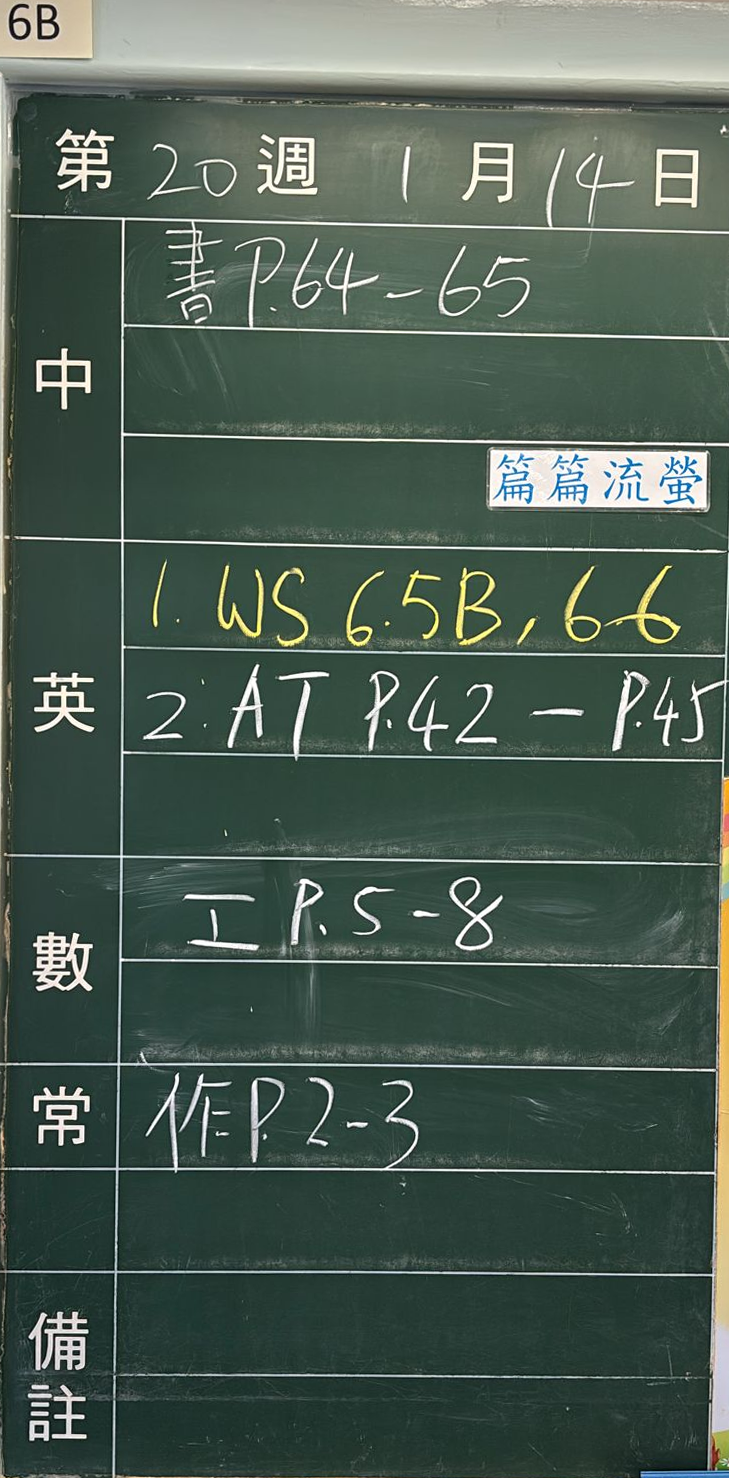 6B
第 20 週 1 月 14 日
中
書 P.64-65
篇篇流螢
英
1. WS 6.5B, 6.6
2. AT P.42 - P.45
數
工 P.5-8
常
作 P.2-3
備註